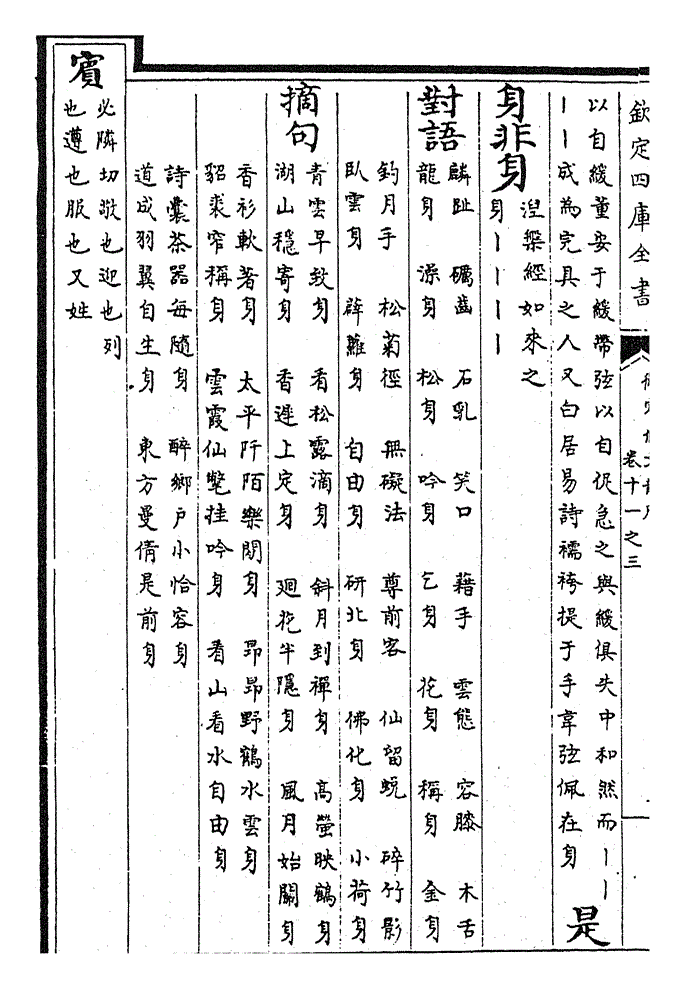 欽定四庫全書
卷十一之三
以自緩董安于緩帶弦以自促急之與緩俱失中和然而丨丨
丨丨成為完具之人又白居易詩襦袴提于手韋弦佩在身 是
身非身 湼槃經如來之
身丨丨丨丨
對語 麟趾 礪齒 石乳 笑口 藉手 雲態 容膝 木舌
龍身 澡身 松身 吟身 乞身 花身 稱身 金身
釣月手 松菊徑 無礙法 尊前客 仙留蛻 碎竹影
臥雲身 薜蘿身 自由身 研北身 佛化身 小荷身
摘句 青雲早致身 看松露滴身 斜月到禪身 高螢映鶴身
湖山穩寄身 香遲上定身 廻花半隱身 風月始關身
香衫軟著身 太平阡陌樂閒身 昂昂野鶴水雲身
貂裘窄稱身 雲霞仙氅挂吟身 看山看水自由身
詩囊茶器每隨身 醉鄉戶小恰容身
道成羽翼自生身 東方曼倩是前身
賓 必隣切敬也迎也列
也遵也服也又姓